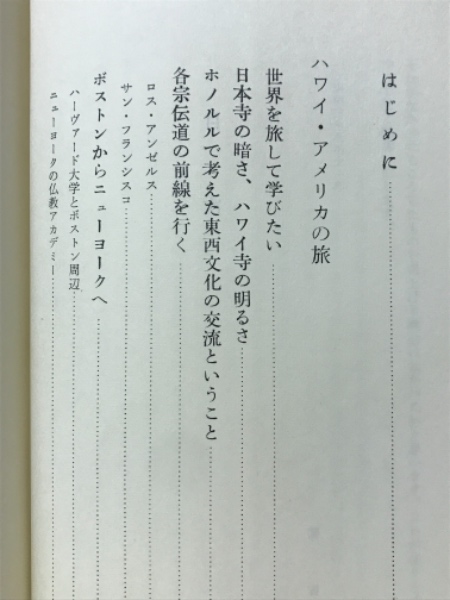 はじめに
ハワイ・アメリカの旅
世界を旅して学びたい
日本寺の暗さ、ハワイ寺の明るさ
ホノルルで考えた東西文化の交流ということ
各宗伝道の前線を行く
ロス・アンゼルス
サン・フランシスコ
ボストンからニューヨークへ
ハーヴァード大学とボストン周辺
ニューヨークの仏教アカデミー